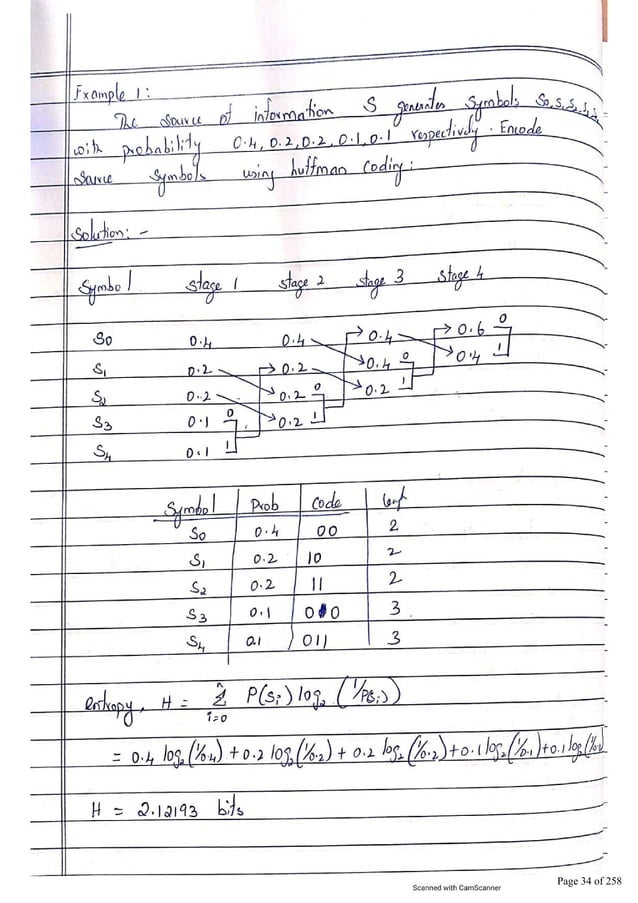 Example 1:
The source of information S generates Symbols S0, S1, S2, S3, S4
with probability 0.4, 0.2, 0.2, 0.1, 0.1 respectively. Encode
source symbols using huffman coding:
Solution: -
Symbol Stage 1 Stage 2 Stage 3 Stage 4
S0 0.4 0.4 0.4 0.6 0
S1 0.2 0.2 0.4 0 0.4 1
S2 0.2 0.2 0 0.2 1
S3 0.1 0 0.2 1
S4 0.1 1
Symbol Prob Code
S0 0.4 00 2
S1 0.2 10 2
S2 0.2 11 2
S3 0.1 010 3
S4 0.1 011 3
entropy, H = Σ i=0 n P(Si) log2 (1/P(Si))
= 0.4 log2 (1/0.4) + 0.2 log2 (1/0.2) + 0.2 log2 (1/0.2) + 0.1 log2 (1/0.1) + 0.1 log2 (1/0.1)
H = 2.12193 bits
Scanned with CamScanner
Page 34 of 258